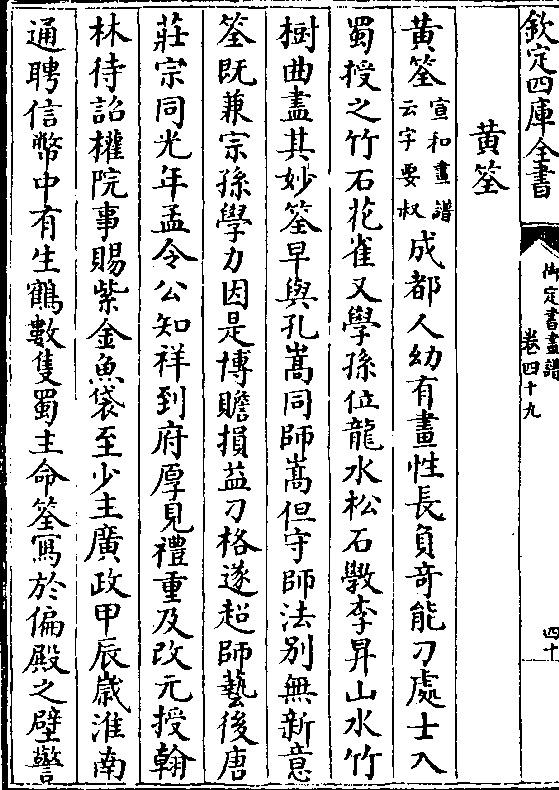 欽定四庫全書
御定書畫譜
卷四十九
四十
黄筌
黄筌
宣和畫譜
云字要叔
成都人幼有畫性長負竒能刁處士入
蜀授之竹石花雀又學孫位龍水松石斆李昇山水竹
樹曲盡其妙筌早與孔嵩同師嵩但守師法别無新意
筌既兼宗孫學力因是博贍損益刁格遂超師藝後唐
莊宗同光年孟令公知祥到府厚見禮重及改元授翰
林待詔權院事賜紫金魚袋至少主廣政甲辰歲淮南
通聘信幣中有生鶴數隻蜀主命筌寫於偏殿之壁警